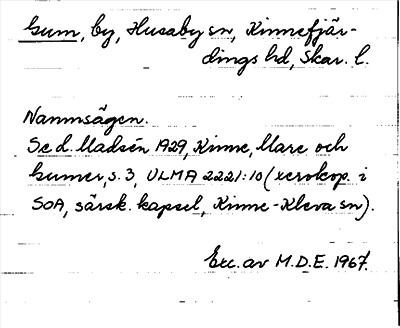 Gum, by, Husaby sn, Kinnefjär-
dings hd, Skar. l.
Namnsägen.
Se d. Madsén 1929, Kinne, Mare och
Gumer, s. 3, ULMA 2221:10 (xerokop. i
SOA, särsk. kapsel, Kinne-Kleva sn).
Exc. av M.D.E. 1967.